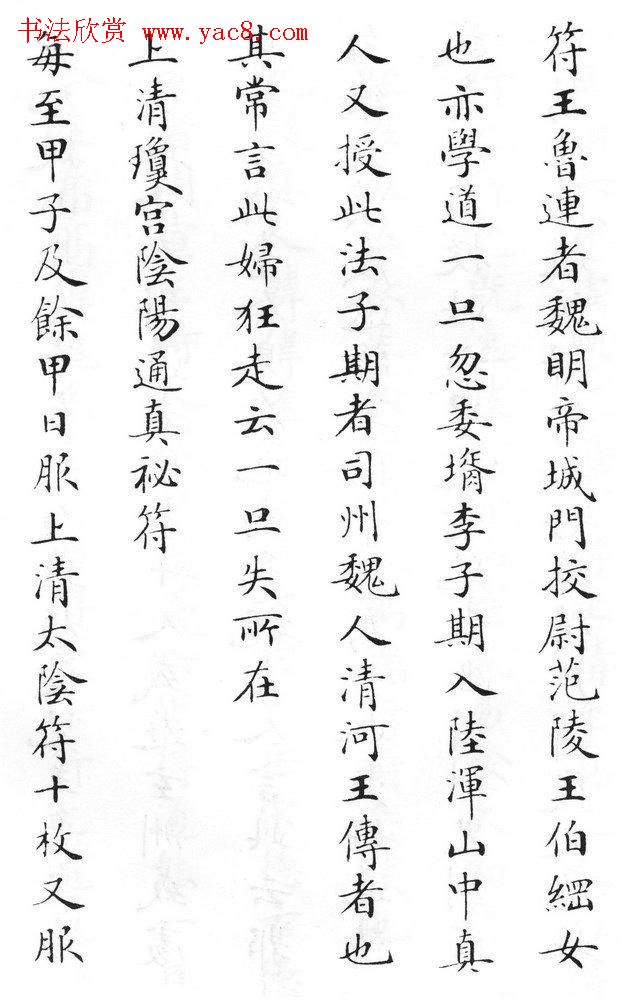 书法欣赏 www.yac8.com
符王魯連者魏明帝城門挍尉范陵王伯綱女
也亦學道一旦忽委壻李子期入陸渾山中真
人又授此法子期者司州魏人清河王傳者也
其常言此婦狂走云一旦失所在
上清瓊宮陰陽通真祕符
每至甲子及餘甲日服上清太陰符十枚又服